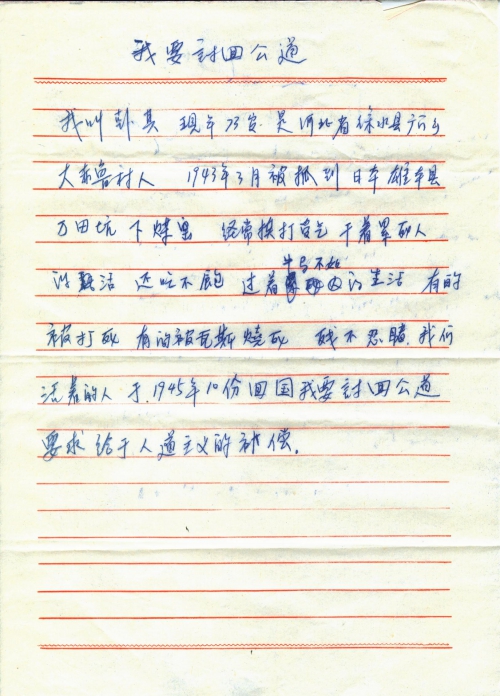 我要討回公道
我叫 其 现年73岁 是河北省徐水县
大赤鲁村人 1943年3月被抓到日本 本县
万田坑下煤窑 经常挨打 干着累死人
的 活 还吃不饱 过着牛马不如的生活 有的
被打死 有的被瓦斯烧死 残不忍睹.我们
活着的人于.1945年10份回国我要討回公道
要求给于人道主义的补偿.